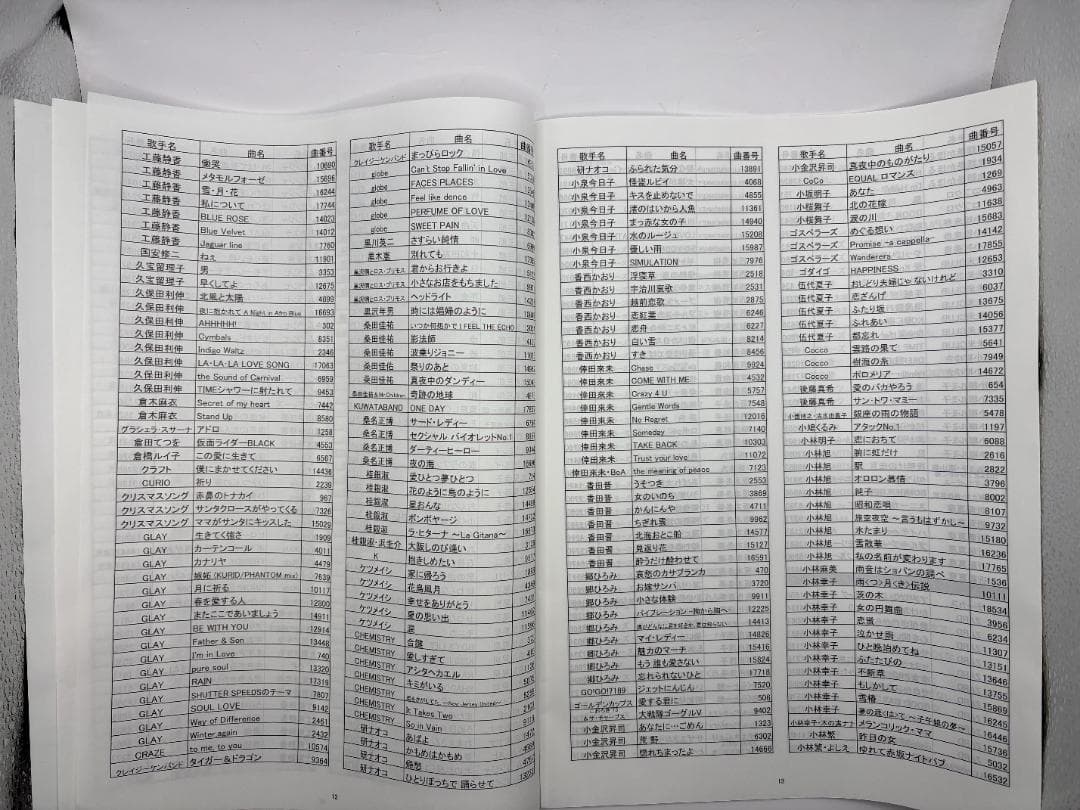 歌手名 曲名 曲番号
工藤静香 慟哭 10690
工藤静香 メタモルフォーゼ 15696
工藤静香 雪・月・花 16244
工藤静香 私について 17744
工藤静香 BLUE ROSE 14023
工藤静香 Blue Velvet 14012
工藤静香 Jaguar line 7760
国安修二 ねぇ 11901
久宝留理子 男 3353
久宝留理子 早くしてよ 12675
久保田利伸 北風と太陽 4899
久保田利伸 夜に抱かれて A Night in Afro Blue 16693
久保田利伸 AHHHHH! 302
久保田利伸 Cymbals 8351
久保田利伸 Indigo Waltz 2346
久保田利伸 LA・LA・LA LOVE SONG 17063
久保田利伸 the Sound of Carnival 6959
久保田利伸 TIMEシャワーに射たれて 9453
倉木麻衣 Secret of my heart 7442
倉木麻衣 Stand Up 8580
グラシェラ・スサーナ アドロ 1258
倉田てつを 仮面ライダーBLACK 4553
倉橋ルイ子 この愛に生きて 6567
クラフト 僕にまかせてください 14436
CURIO 祈り 2239
クリスマスソング 赤鼻のトナカイ 967
クリスマスソング サンタクロースがやってくる 7326
クリスマスソング ママがサンタにキッスした 15029
GLAY 生きてく強さ 1909
GLAY カーテンコール 4011
GLAY カナリヤ 4479
GLAY 嫉妬(KURID/PHANTOM mix) 7639
GLAY 月に祈る 10117
GLAY 春を愛する人 12800
GLAY またここであいましょう 14911
GLAY BE WITH YOU 12914
GLAY Father & Son 13448
GLAY I'm in Love 740
GLAY pure soul 13320
GLAY RAIN 17319
GLAY SHUTTER SPEEDSのテーマ 7807
GLAY SOUL LOVE 9142
GLAY Way of Difference 2461
GLAY Winter,again 2432
CRAZE to me, to you 10574
クレイジーケンバンド タイガー&ドラゴン 9364
12
歌手名 曲名
クレイジーケンバンド まっぴらロック
globe Can't Stop Fallin' in Love
globe FACES PLACES
globe Feel like dance
globe PERFUME OF LOVE
globe SWEET PAIN
黒川英二 さすらい純情
黒木憲 別れても
黒沢明とロス・プリモス 君からお行きよ
黒沢明とロス・プリモス 小さなお店をもちました
黒沢明とロス・プリモス ヘッドライト
黒沢年男 時には娼婦のように
桑田佳祐 いつか何処かで I FEEL THE ECHO
桑田佳祐 影法師
桑田佳祐 波乗りジョニー
桑田佳祐 祭りのあと
桑田佳祐 真夜中のダンディー
桑田佳祐&Mr.Children 奇跡の地球
KUWATABAND ONE DAY
桑名正博 サード・レディー
桑名正博 セクシャル バイオレットNo.1
桑名正博 ダーティーヒーロー
桑名正博 夜の海
桂銀淑 愛ひとつ夢ひとつ
桂銀淑 花のように鳥のように
桂銀淑 星おんな
桂銀淑 ボンボヤージ
桂銀淑 ラ・ヒターナ ~La Gitana~
桂銀淑・浜圭介 大阪しのび逢い
K 抱きしめたい
ケツメイシ 家に帰ろう
ケツメイシ 花鳥風月
ケツメイシ 幸せをありがとう
ケツメイシ 夏の思い出
ケツメイシ 涙
CHEMISTRY 合鍵
CHEMISTRY 愛しすぎて
CHEMISTRY アシタヘカエル
CHEMISTRY キミがいる
CHEMISTRY
CHEMISTRY It Takes Two
CHEMISTRY So in Vain
研ナオコ あばよ
研ナオコ かもめはかもめ
研ナオコ
研ナオコ ひとりぽっちで 踊らせて
歌手名 曲名 曲番号
研ナオコ ふられた気分 13891
小泉今日子 怪盗ルビイ 4068
小泉今日子 キスを止めないで 4855
小泉今日子 渚のはいから人魚 11361
小泉今日子 まっ赤な女の子 14940
小泉今日子 水のルージュ 15208
小泉今日子 優しい雨 15987
小泉今日子 SIMULATION 7976
香西かおり 浮寝草 2518
香西かおり 宇治川哀歌 2531
香西かおり 越前恋歌 2875
香西かおり 恋紅葉 6246
香西かおり 恋舟 6227
香西かおり 白い雪 8214
香西かおり すき 8456
倖田來未 Chase 9924
倖田來未 COME WITH ME 4532
倖田來未 Crazy 4 U 5757
倖田來未 Gentle Words 7548
倖田來未 No Regret 12016
倖田來未 Someday 7140
倖田來未 TAKE BACK 10303
倖田來未 Trust your love 11072
倖田來未・BoA the meaning of peace 7123
香田晋 うそつき 2553
香田晋 女のいのち 3869
香田晋 かんにんや 4711
香田晋 ちぎれ雲 9962
香田晋 北海おとこ船 14577
香田晋 見返り花 15127
香田晋 酔うだけ酔わせて 16591
郷ひろみ 哀愁のカサブランカ 470
郷ひろみ お嫁サンバ 3720
郷ひろみ 小さな体験 9911
郷ひろみ バイブレーション ~胸から胸へ~ 12225
郷ひろみ 14413
郷ひろみ マイ・レディー 14826
郷ひろみ 魅力のマーチ 15416
郷ひろみ もう誰も愛さない 15824
郷ひろみ 忘れられないひと 17718
GO!GO!7188 ジェットにんじん 7520
ゴールデンカップス 愛する君に 508
大戦隊ゴーグルV 9402
小金沢昇司 あなたに…ごめん 1323
小金沢昇司 夜野 6302
小金沢昇司 惚れちまったよ 14666
13
歌手名 曲名 曲番号
小金沢昇司 真夜中のものがたり 15057
CoCo EQUALロマンス 1934
小坂明子 あなた 1269
小桜舞子 北の花嫁 4963
小桜舞子 涙の川 11638
ゴスペラーズ めぐる想い 15683
ゴスペラーズ Promise -a cappella- 14142
ゴスペラーズ Wanderers 17855
ゴダイゴ HAPPINESS 12653
伍代夏子 おしどり夫婦じゃないけれど 3310
伍代夏子 恋ざんげ 6037
伍代夏子 ふたり坂 13675
伍代夏子 ふれあい 14056
伍代夏子 都忘れ 15377
Cocco 雲路の果て 5641
Cocco 樹海の糸 7949
Cocco ポロメリア 14672
後藤真希 愛のバカやろう 654
後藤真希 サン・トワ・マミー 7335
銀座の雨の物語 5478
小鳩くるみ アタックNo.1 1197
小林明子 恋におちて 6088
小林旭 腕に虹だけ 2616
小林旭 駅 2822
小林旭 オロロン慕情 3796
小林旭 純子 8002
小林旭 昭和恋唄 8107
小林旭 旅空夜空 ~言うもはずかし~ 9732
小林旭 水たまり 15180
小林旭 雪散華 16236
小林旭 私の名前が変わります 17765
小林麻美 雨音はショパンの調べ 1536
小林幸子 雨(つ)月(くき)伝説 10111
小林幸子 茨の木 18534
小林幸子 女の円舞曲 3956
小林幸子 恋蛍 6234
小林幸子 泣かせ雨 11307
小林幸子 ひと晩泊めてね 13151
小林幸子 ふたたびの 13646
小林幸子 不断草 13755
小林幸子 もしかして 15889
小林幸子 雪椿 16245
小林幸子 夢の涯て ~子午線の夢~ 16446
メランコリック・ママ 15736
小林繁 昨日の女 5032
小林繁・よしえ ゆれて赤坂ナイトパブ 16532